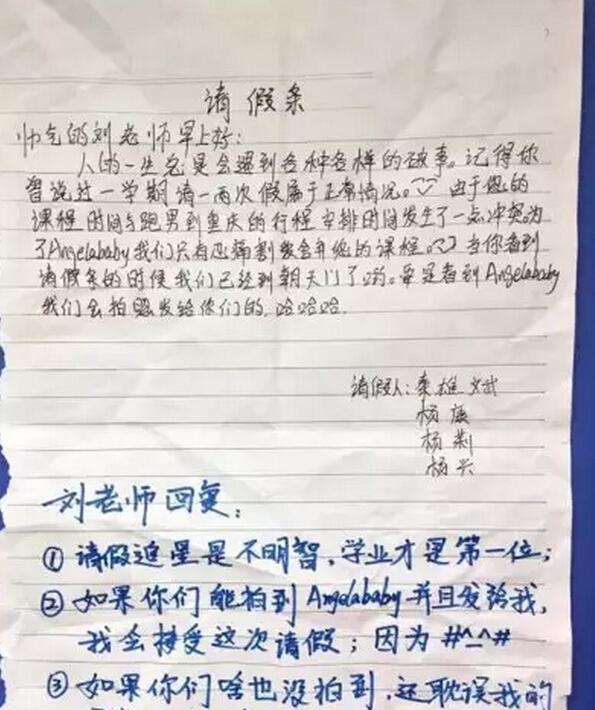 请假条
帅气的刘老师早上好:
人的一生总是会遇到各种各样的破事。记得你
曾说过一学期请一两次假属于正常情况。由于您的
课程时间与跑男到重庆的行程安排时间发生了一点冲突为
了Angelababy我们只有忍痛割爱舍弃您的课程。当你看到
请假条的时候我们已经到朝天门了哟。要是看到Angelababy
我们会拍照发给你们的,哈哈哈.
请假人:秦雄 文武
杨
杨
杨兴
刘老师回复:
①请假追星是不明智,学业才是第一位;
②如果你们能拍到Angelababy并且发给我,
我会接受这次请假;因为#^_^#
③如果你们啥也没拍到,还耽误我的